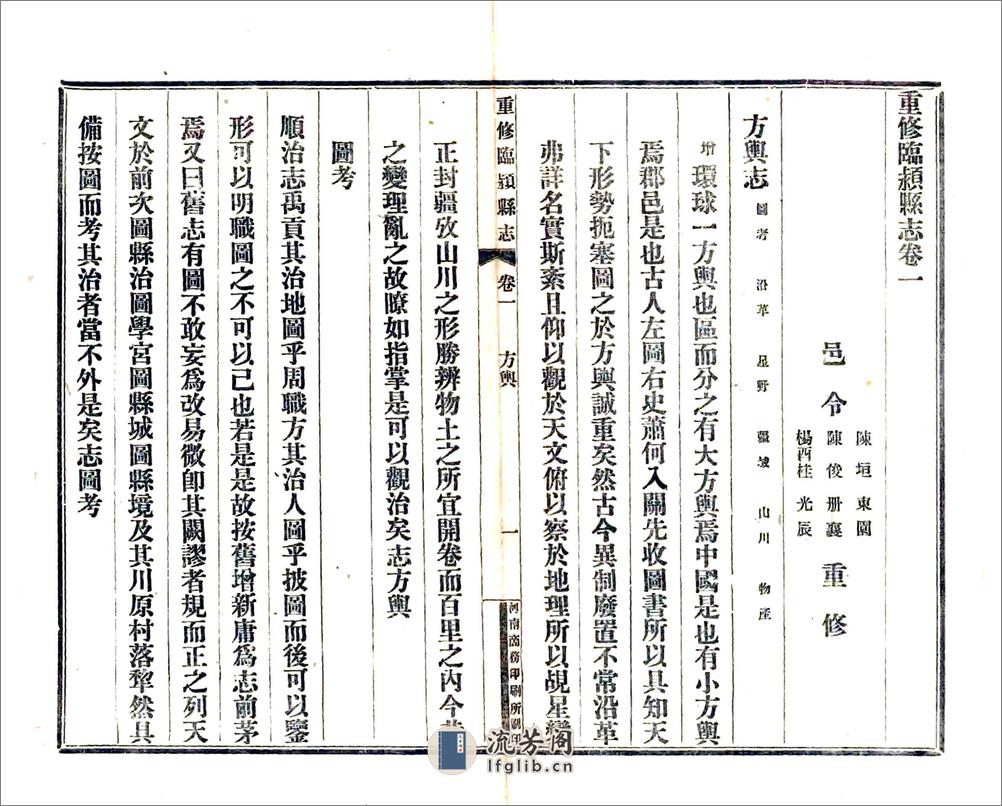 重修臨潁縣志卷一
陳垣東園
邑令陳俊册襄重修
楊酉桂光辰
方輿志 圖考 沿革 星野 疆域 山川 物產
增環球一方輿也區而分之有大方輿焉中國是也有小方輿
焉郡邑是也古人左圖右史蕭何入關先收圖書所以具知天
下形勢扼塞圖之於方輿誠重矣然古今異制廢置不常沿革
弗詳名實斯紊且仰以觀於天文俯以察於地理所以覘星
正封疆攷山川之形勝辨物土之所宜開卷而百里之內今昔
之變理亂之故瞭如指掌是可以觀治矣志方輿
圖考
順治志禹貢其治地圖乎周職方其治人圖乎披圖而後可以鑒
形可以明職圖之不可以已也若是是故按舊增新庸為志前茅
焉又曰舊志有圖不敢妄為改易微卽其闕謬者規而正之列天
文於前次圖縣治圖學宮圖縣城圖縣境及其川原村落犂然具
備按圖而考其治者當不外是矣志圖考
重修臨潁縣志 卷一 方輿 一 河南商務印刷所刷印
流芳閣
lfglib.cn